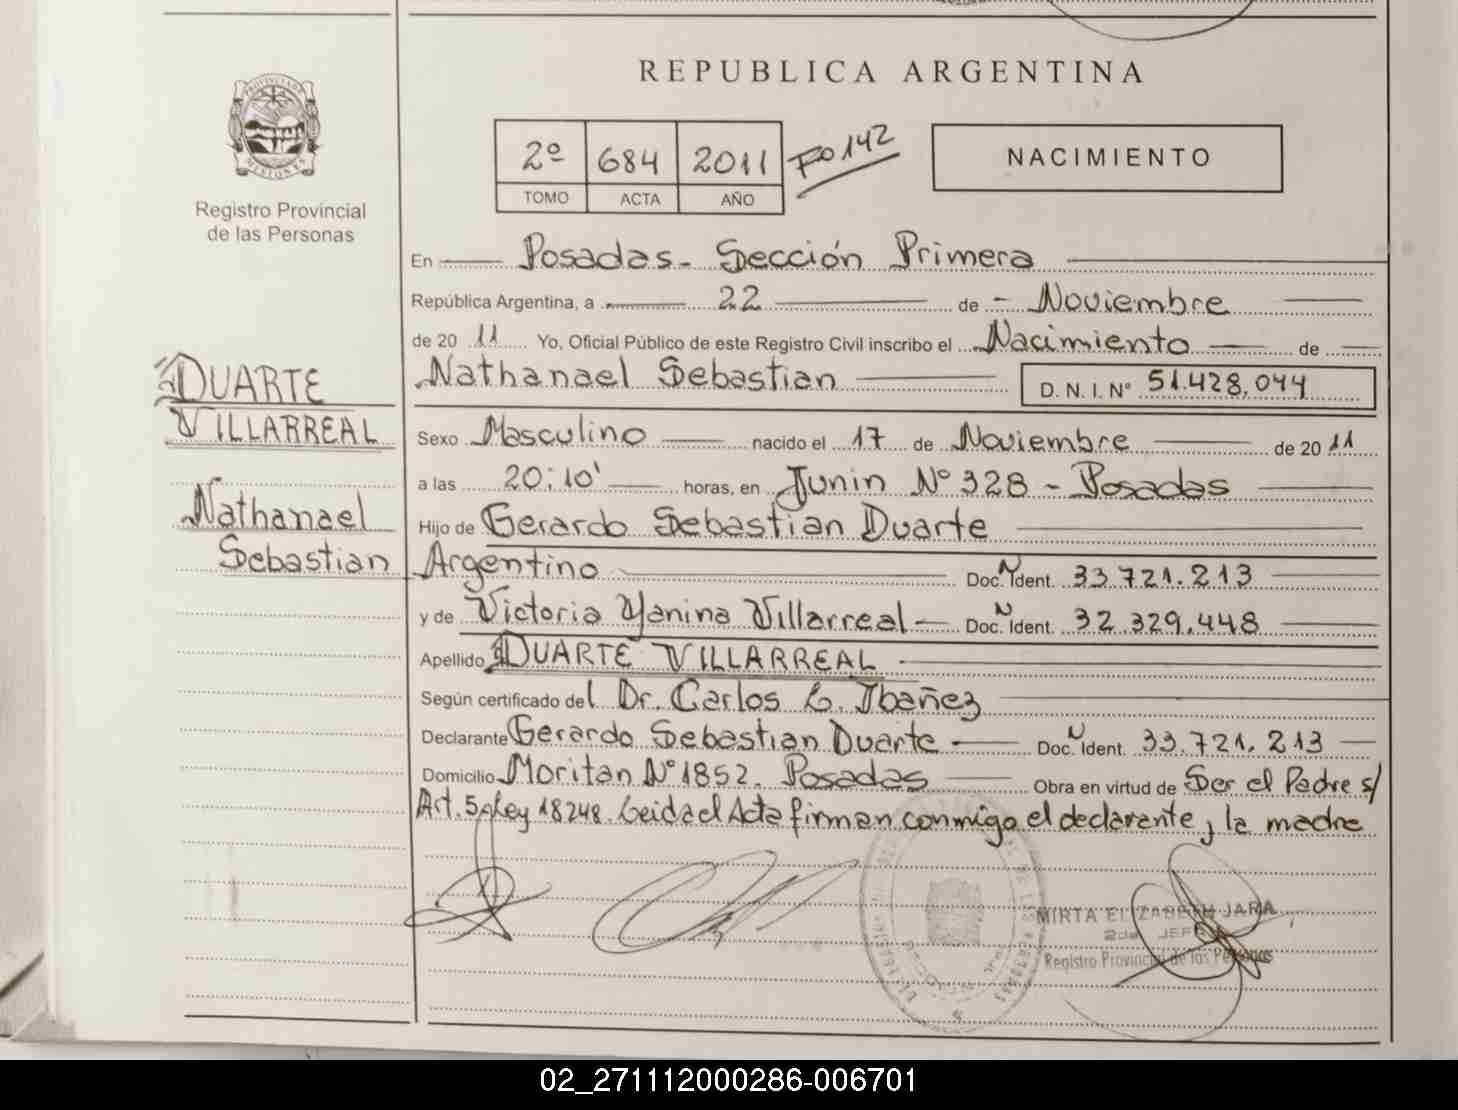 REPUBLICA ARGENTINA
2º 684 2011 Fo 142
TOMO ACTA AÑO
NACIMIENTO
PROVINCIA DE
MISIONES
Registro Provincial
de las Personas
DUARTE
VILLARREAL
Nathanael
Sebastian
En Posadas - Sección Primera
República Argentina, a 22 de - Noviembre
de 20 11 Yo, Oficial Público de este Registro Civil inscribo el Nacimiento de
Nathanael Sebastian D. N. I. Nº 51.428.044
Sexo Masculino nacido el 17 de Noviembre de 20 11
a las 20:10' horas, en Junin Nº 328 - Posadas
Hijo de Gerardo Sebastian Duarte
Argentino Doc. N Ident. 33.721.213
y de Victoria Yanina Villarreal - Doc. N Ident. 32.329.448
Apellido DUARTE VILLARREAL
Según certificado del Dr. Carlos G. Ibañez
Declarante Gerardo Sebastian Duarte Doc. N Ident. 33.721.213
Domicilio Moritan Nº 1852. Posadas Obra en virtud de Ser el Padre s/
Art. 5º Ley 18248. Leida el Acta firman conmigo el declarante y la madre
MIRTA ELIZABETH JARA
2da JEFE
Registro Provincial de las Personas
02_271112000286-006701